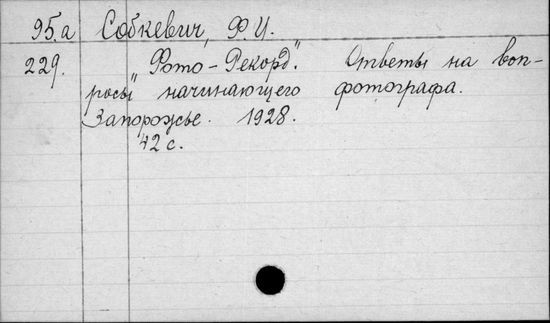 95.а Собкевич, Ф И.
229. "Фото-Рекорд". Ответы на воп-
росы начинающего фотографа.
Запорожье. 1928.
42 с.